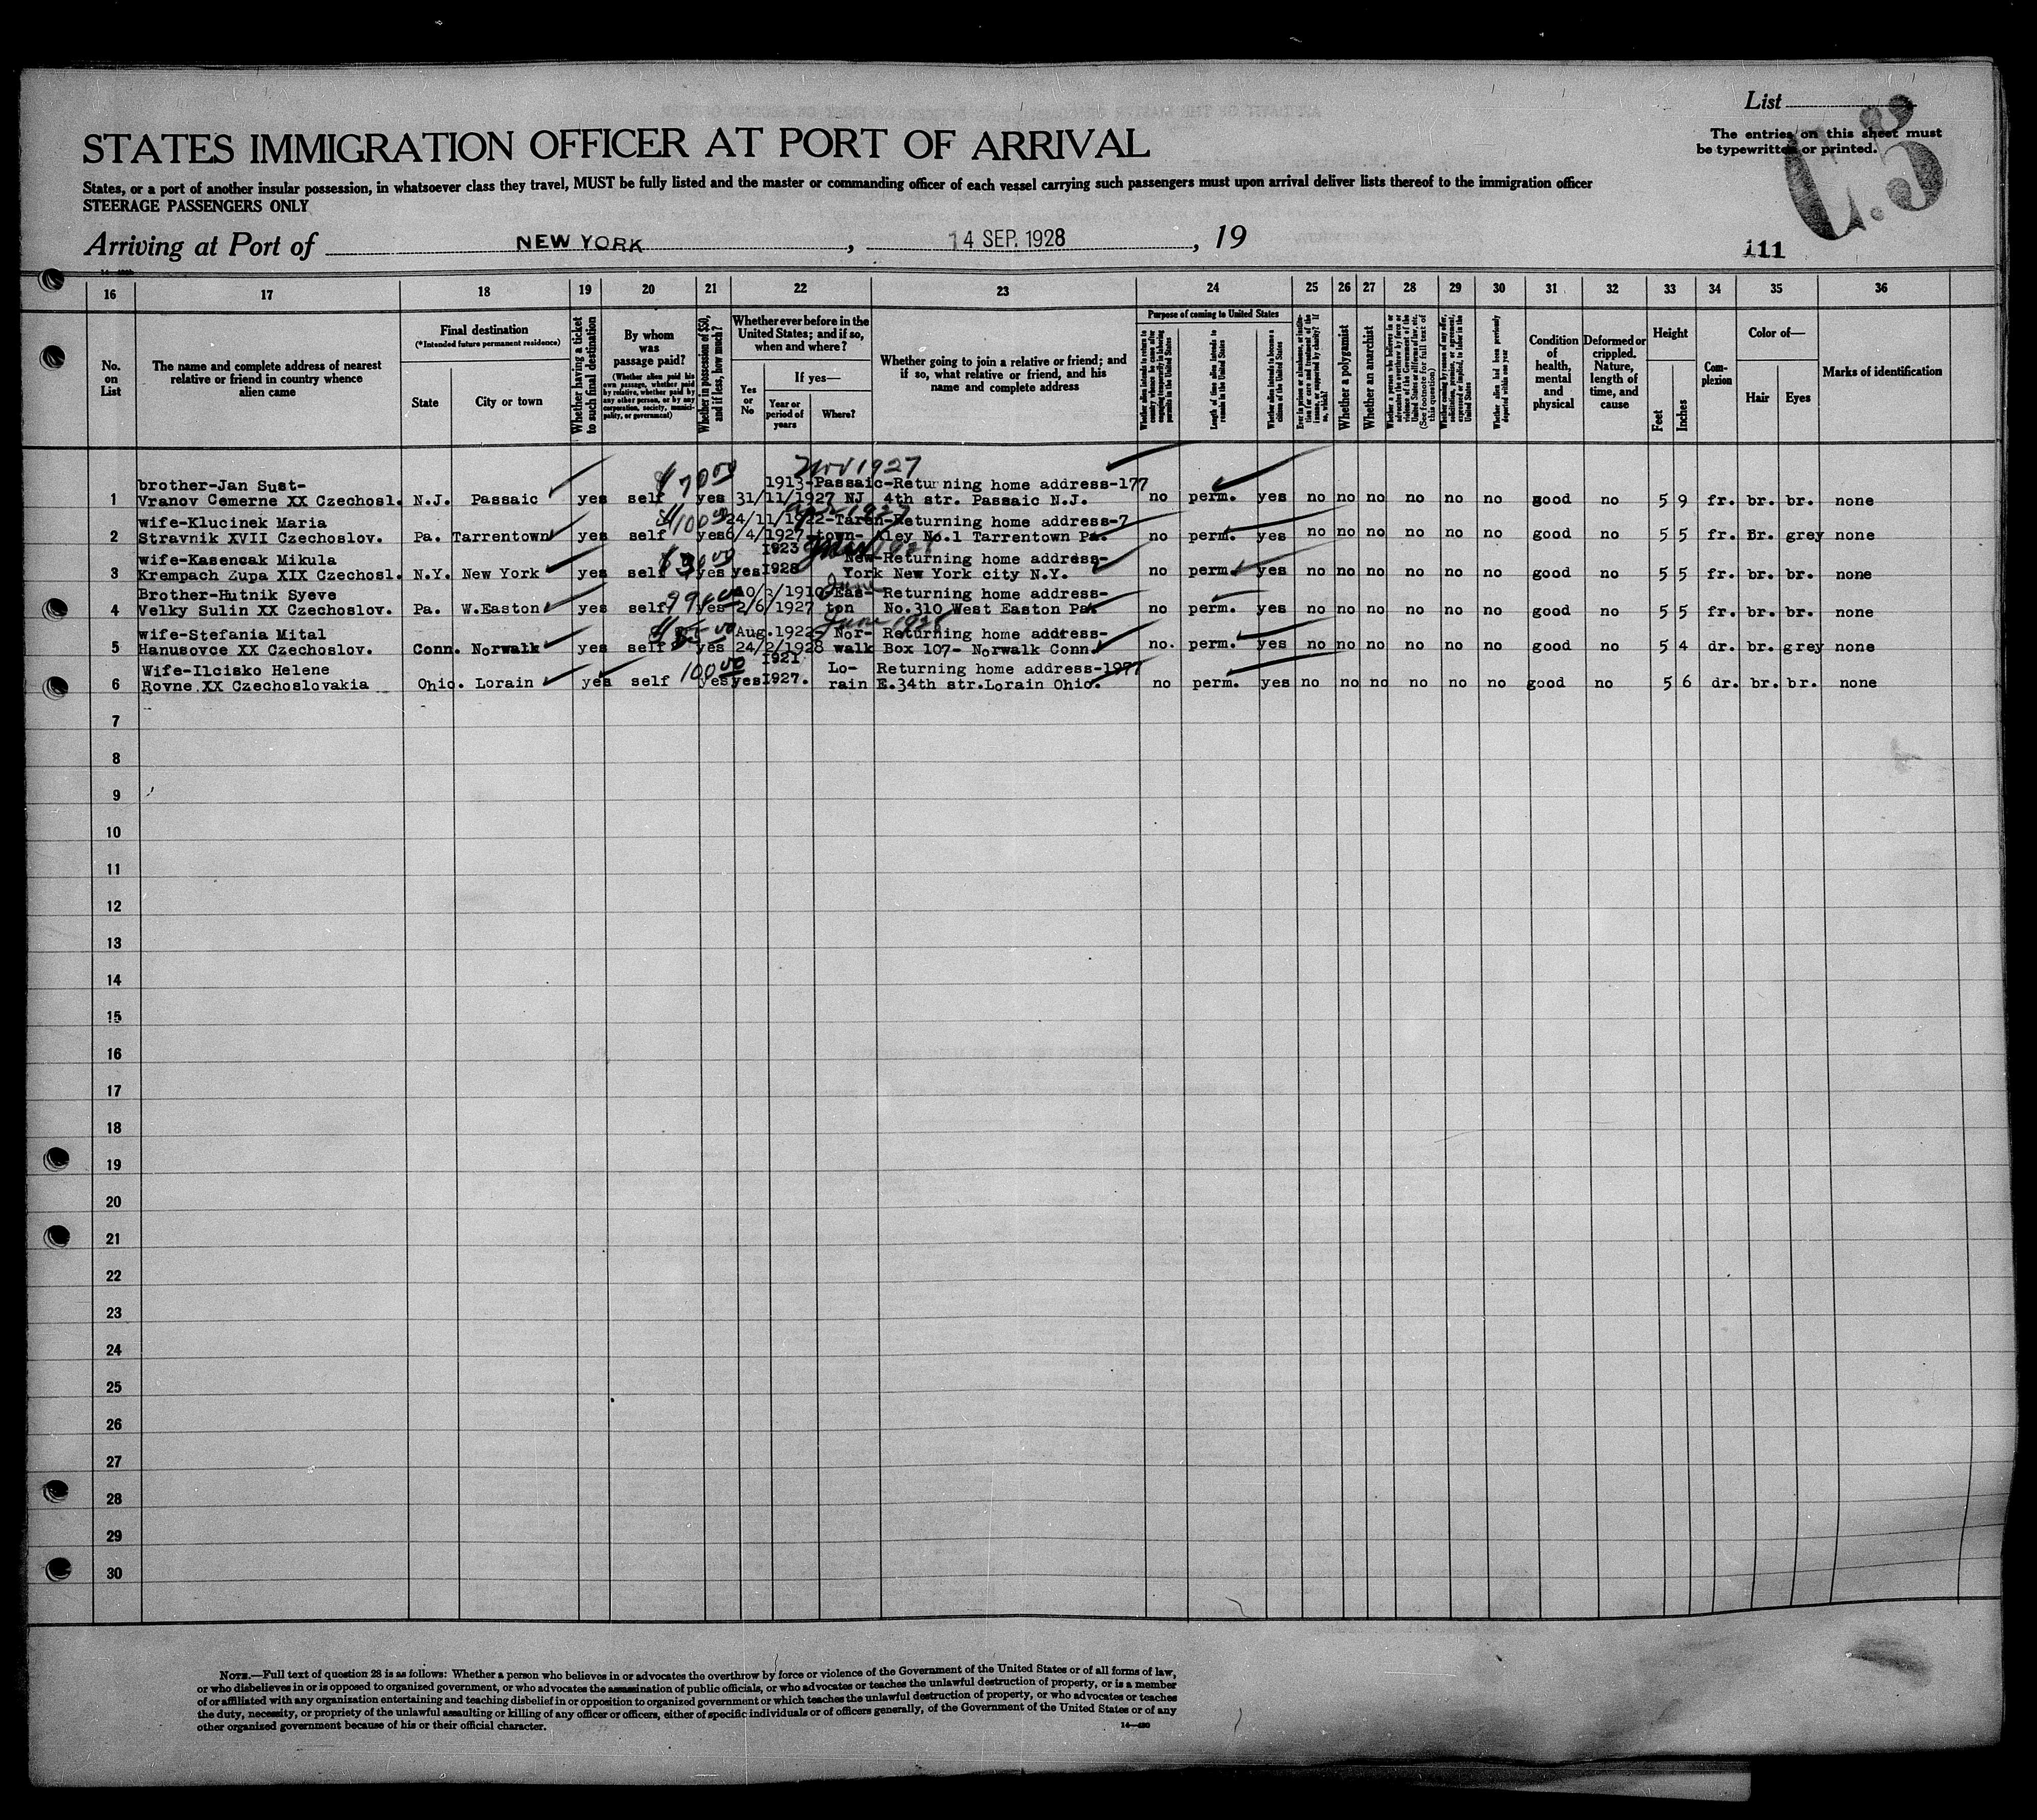 List
The entries on this sheet must
be typewritten or printed.
C.3
STATES IMMIGRATION OFFICER AT PORT OF ARRIVAL
States, or a port of another insular possession, in whatsoever class they travel, MUST be fully listed and the master or commanding officer of each vessel carrying such passengers must upon arrival deliver lists thereof to the immigration officer
STEERAGE PASSENGERS ONLY
Arriving at Port of NEW YORK, 14 SEP. 1928, 19
111
16 17 18 19 20 21 22 23 24 25 26 27 28 29 30 31 32 33 34 35 36
No. on List
The name and complete address of nearest relative or friend in country whence alien came
Final destination
(*Intended future permanent residence)
State
City or town
Whether having a ticket to such final destination
By whom was passage paid?
(Whether alien paid his own passage, whether paid by relative, whether paid by any other person, or by any corporation, society, municipality, or government)
Whether in possession of $50, and if less, how much?
Whether ever before in the United States; and if so, when and where?
Yes or No
If yes—
Year or period of years
Where?
Whether going to join a relative or friend; and if so, what relative or friend, and his name and complete address
Purpose of coming to United States
Length of time alien intends to remain in the United States
Whether alien intends to become a citizen of the United States
Whether a polygamist
Whether an anarchist
(See footnote for full text of this question)
Condition of health, mental and physical
Deformed or crippled. Nature, length of time, and cause
Height
Feet
Inches
Complexion
Color of—
Hair
Eyes
Marks of identification
Nov 1927
brother-Jan Sust- $70.00 1913-Passaic-Returning home address-177
1 Vranov Cemerne XX Czechosl. N.J. Passaic yes self yes 31/11/1927 NJ 4th str. Passaic N.J. no perm. yes no no no no no no good no 5 9 fr. br. br. none
wife-Klucinek Maria $100.00 24/11/1922-Taren-Returning home address-7
2 Stravnik XVII Czechoslov. Pa. Tarrentown yes self yes 6/4/1927 town- Aley No.1 Tarrentown Pa. no perm. yes no no no no no no good no 5 5 fr. Br. grey none
wife-Kasencak Mikula 1923 New-Returning home address-
3 Krempach Zupa XIX Czechosl. N.Y. New York yes self yes yes 1928 York New York city N.Y. no perm. yes no no no no no no good no 5 5 fr. br. br. none
Brother-Hutnik Syeve 10/3/1910 Eas- Returning home address-
4 Velky Sulin XX Czechoslov. Pa. W.Easton yes self yes 2/6/1927 ton No.310 West Easton Pa. no perm. yes no no no no no no good no 5 5 fr. br. br. none
wife-Stefania Mital Aug.1922 Nor- Returning home address-
5 Hanusovce XX Czechoslov. Conn. Norwalk yes self yes 24/2/1928 walk Box 107- Norwalk Conn. no. perm. yes no no no no no no good no 5 4 dr. br. grey none
Wife-Ilcisko Helene 100.00 1921 Lo- Returning home address-1977
6 Rovne XX Czechoslovakia Ohio. Lorain yes self yes yes 1927. rain E.34th str.Lorain Ohio. no perm. yes no no no no no no good no 5 6 dr. br. br. none
7
8
9
10
11
12
13
14
15
16
17
18
19
20
21
22
23
24
25
26
27
28
29
30
NOTE.—Full text of question 28 is as follows: Whether a person who believes in or advocates the overthrow by force or violence of the Government of the United States or of all forms of law,
or who disbelieves in or is opposed to organized government, or who advocates the assassination of public officials, or who advocates or teaches the unlawful destruction of property, or is a member
of or affiliated with any organization entertaining and teaching disbelief in or opposition to organized government or which teaches the unlawful destruction of property, or who advocates or teaches
the duty, necessity, or propriety of the unlawful assaulting or killing of any officer or officers, either of specific individuals or of officers generally, of the Government of the United States or of any
other organized government because of his or their official character.
14—480